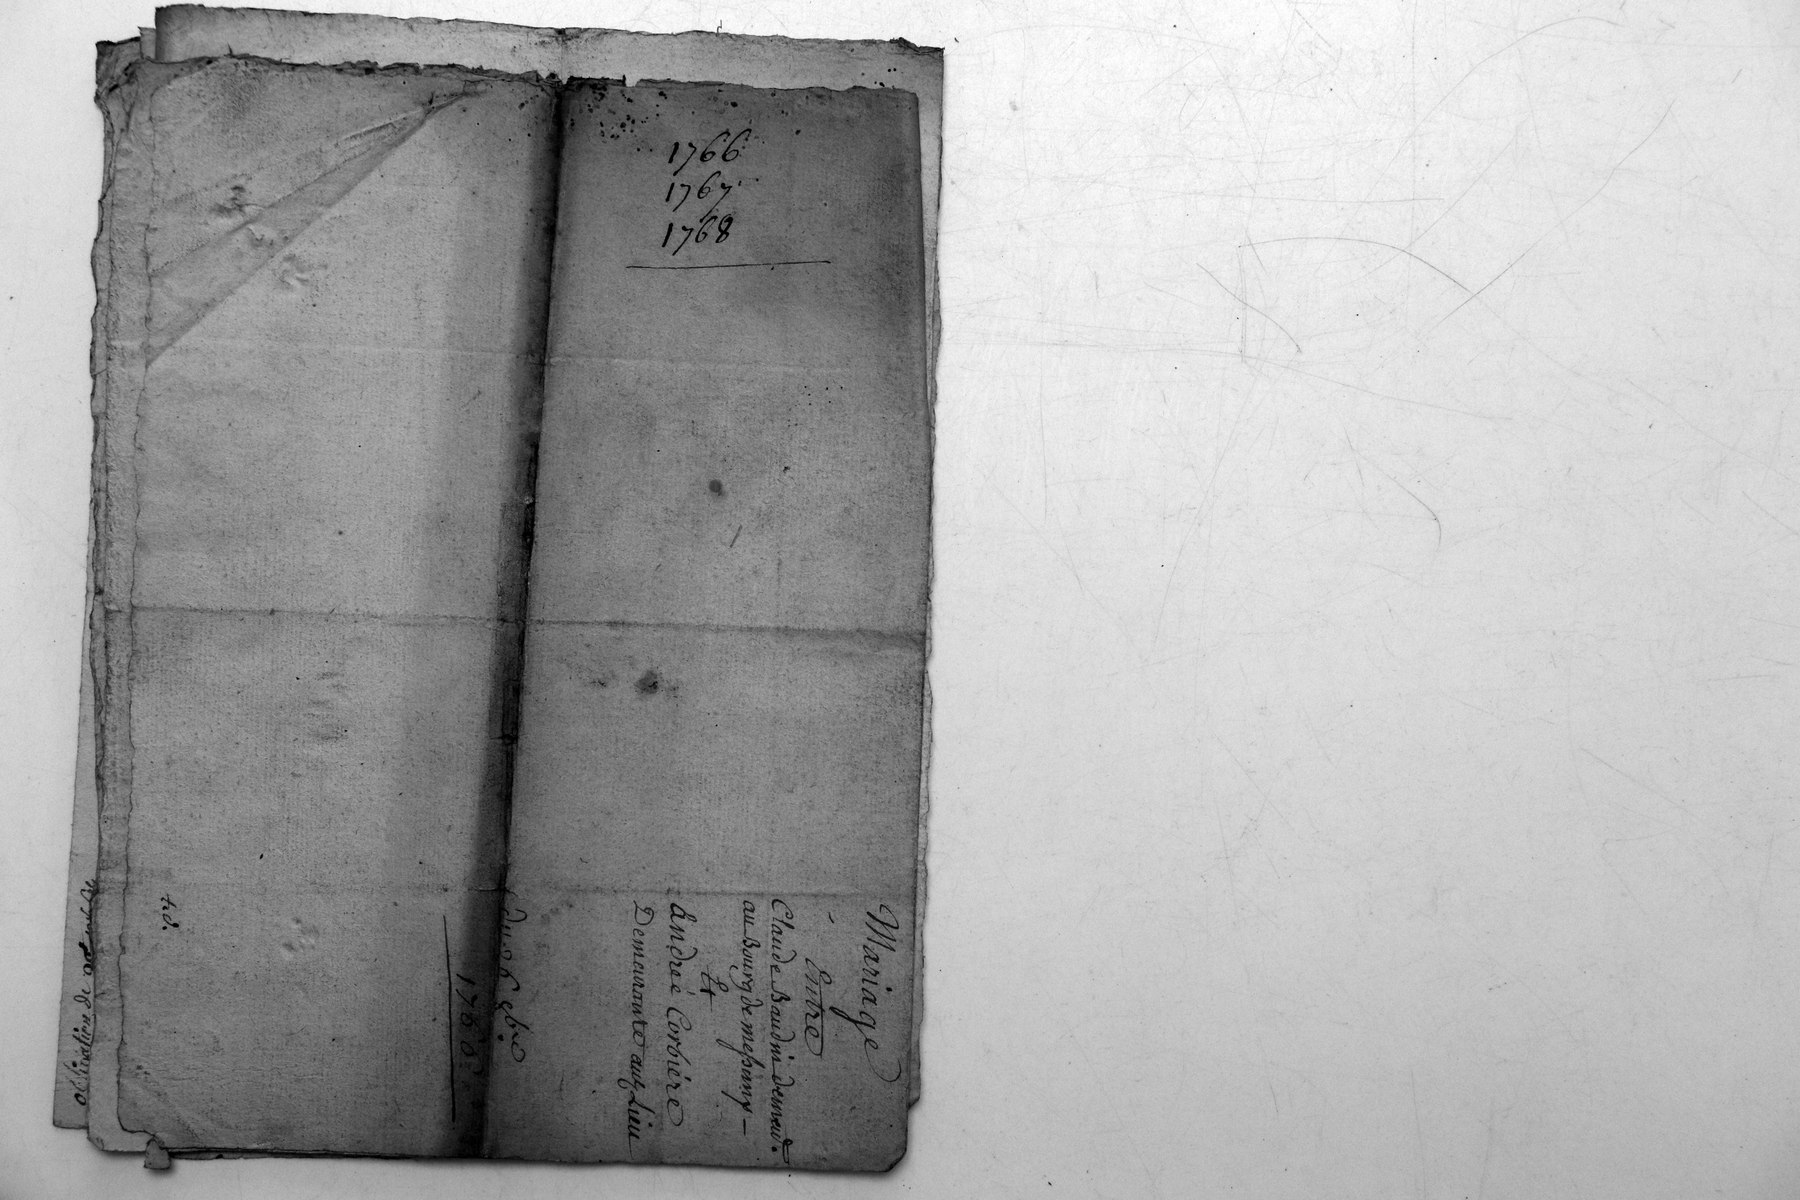 1766
1767
1768
Mariage
Entre
Claude Baudin demeur.
au Bourg de messimy —
Et
Andreé Corbiére
Demeurante audt Lieu
Du 26 9bre
1768
Obligation de